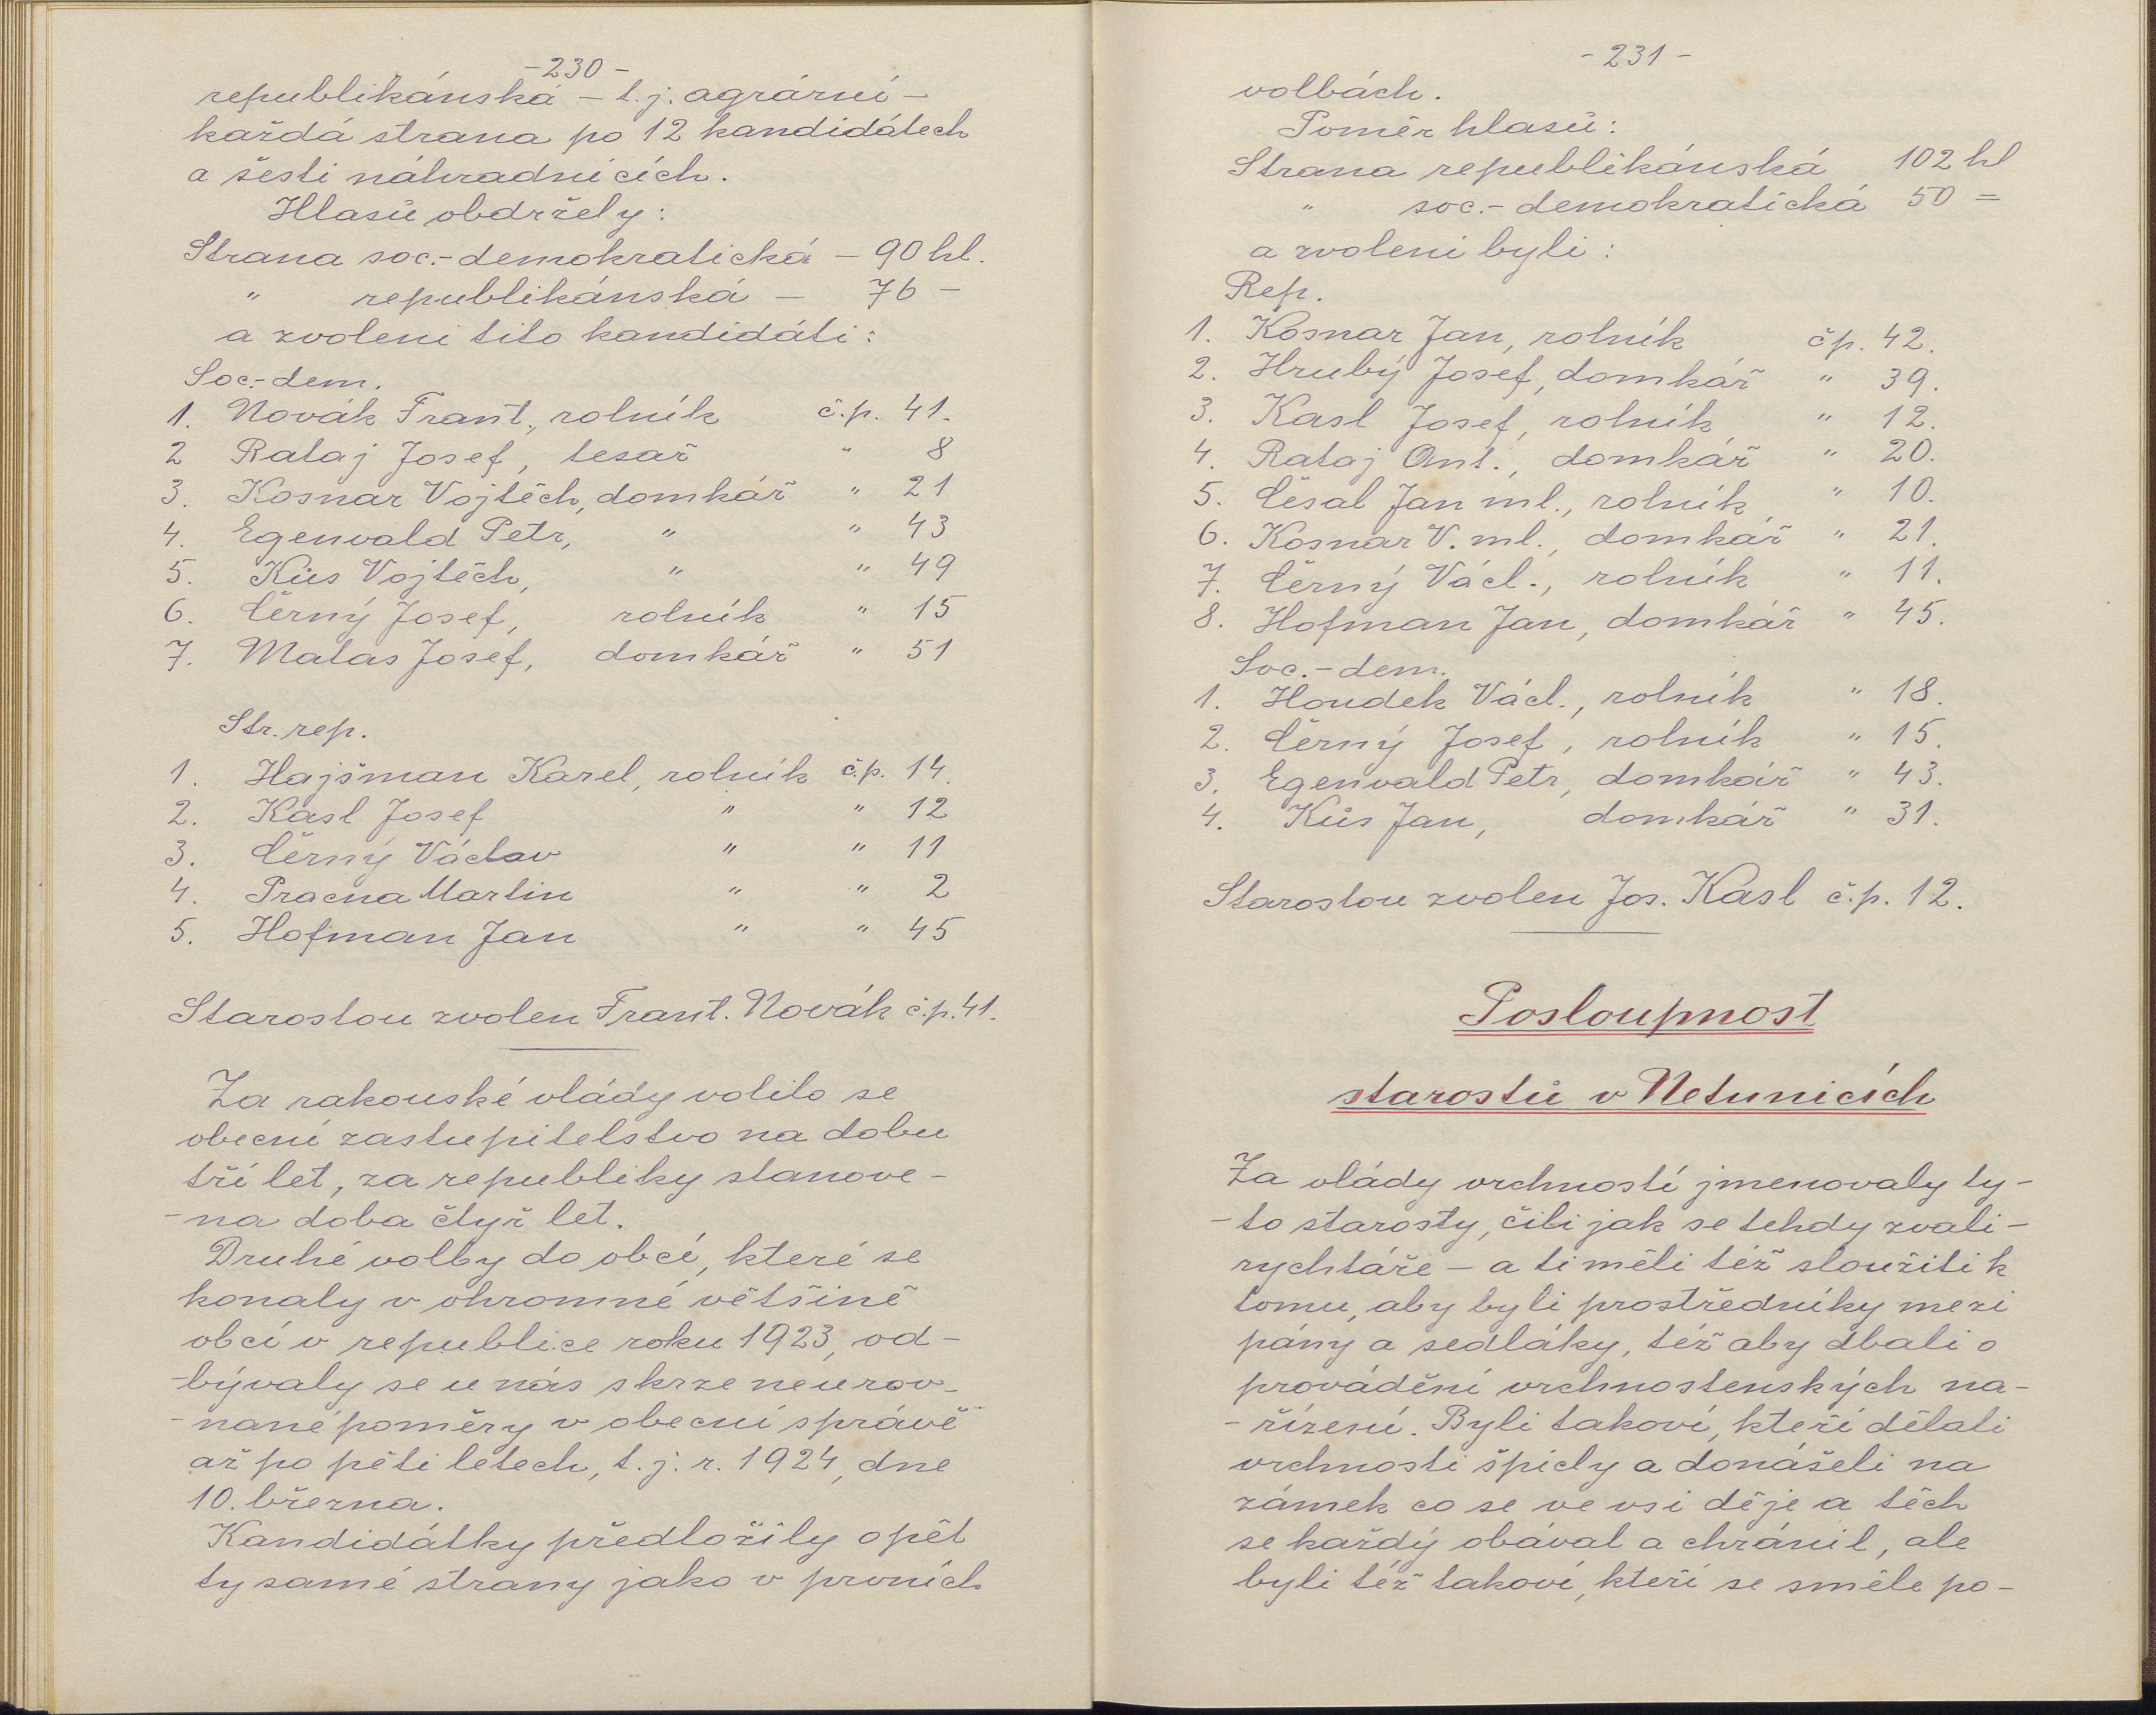 -230-
republikánská - t.j. agrární -
každá strana po 12 kandidátech
a šesti náhradnících.
Hlasů obdržely:
Strana soc.-demokratická - 90 hl.
" republikánská - 76 -
a zvoleni tito kandidáti:
Soc.-dem.
1. Novák Frant., rolník č.p. 41.
2 Rataj Josef, tesař " 8
3. Kosnar Vojtěch, domkář " 21
4. Egenvald Petr, " " 43
5. Kůs Vojtěch, " " 49
6. Černý Josef, rolník " 15
7. Matas Josef, domkář " 51
Str. rep.
1. Hajšman Karel, rolník č.p. 14.
2. Kasl Josef " " 12
3. Černý Václav " " 11
4. Pracna Martin " " 2
5. Hofman Jan " " 45
Starostou zvolen Frant. Novák č.p. 41.
Za rakouské vlády volilo se
obecní zastupitelstvo na dobu
tří let, za republiky stanove-
-na doba čtyř let.
Druhé volby do obcí, které se
konaly v ohromné většině
obcí v republice roku 1923, od-
-bývaly se u nás skrze neurov-
-nané poměry v obecní správě
až po pěti letech, t.j. r. 1924, dne
10. března.
Kandidátky předložily opět
ty samé strany jako v prvních
-231-
volbách.
Poměr hlasů:
Strana republikánská 102 hl
" soc.-demokratická 50 =
a zvoleni byli:
Rep.
1. Kosnar Jan, rolník čp. 42.
2. Hrubý Josef, domkář " 39.
3. Kasl Josef, rolník " 12.
4. Rataj Ant., domkář " 20.
5. Česal Jan ml., rolník " 10.
6. Kosnar V. ml., domkář " 21.
7. Černý Václ., rolník " 11.
8. Hofman Jan, domkář " 45.
Soc.-dem.
1. Houdek Václ., rolník " 18.
2. Černý Josef, rolník " 15.
3. Egenvald Petr, domkář " 43.
4. Kůs Jan, domkář " 31.
Starostou zvolen Jos. Kasl č.p. 12.
Posloupnost
starostů v Netunicích
Za vlády vrchností jmenovaly ty-
-to starosty, čili jak se tehdy zvali -
rychtáře - a ti měli též sloužiti k
tomu, aby byli prostředníky mezi
pány a sedláky, též aby dbali o
provádění vrchnostenských na-
-řízení. Byli takoví, kteří dělali
vrchnosti špicly a donášeli na
zámek co se ve vsi děje a těch
se každý obával a chránil, ale
byli též takoví, kteří se směle po-